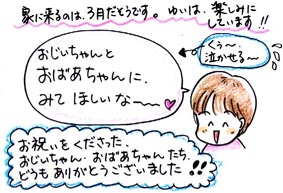 家に来るのは、3月だとうです。ゆいは、楽しみに
しています!!
くぅ〜、
泣かせる〜
おじいちゃんと
おばあちゃんに、
みて ほしいな〜〜
お祝いをくださった、
おじいちゃん・おばあちゃんたち、
どうも ありがとうございました!!